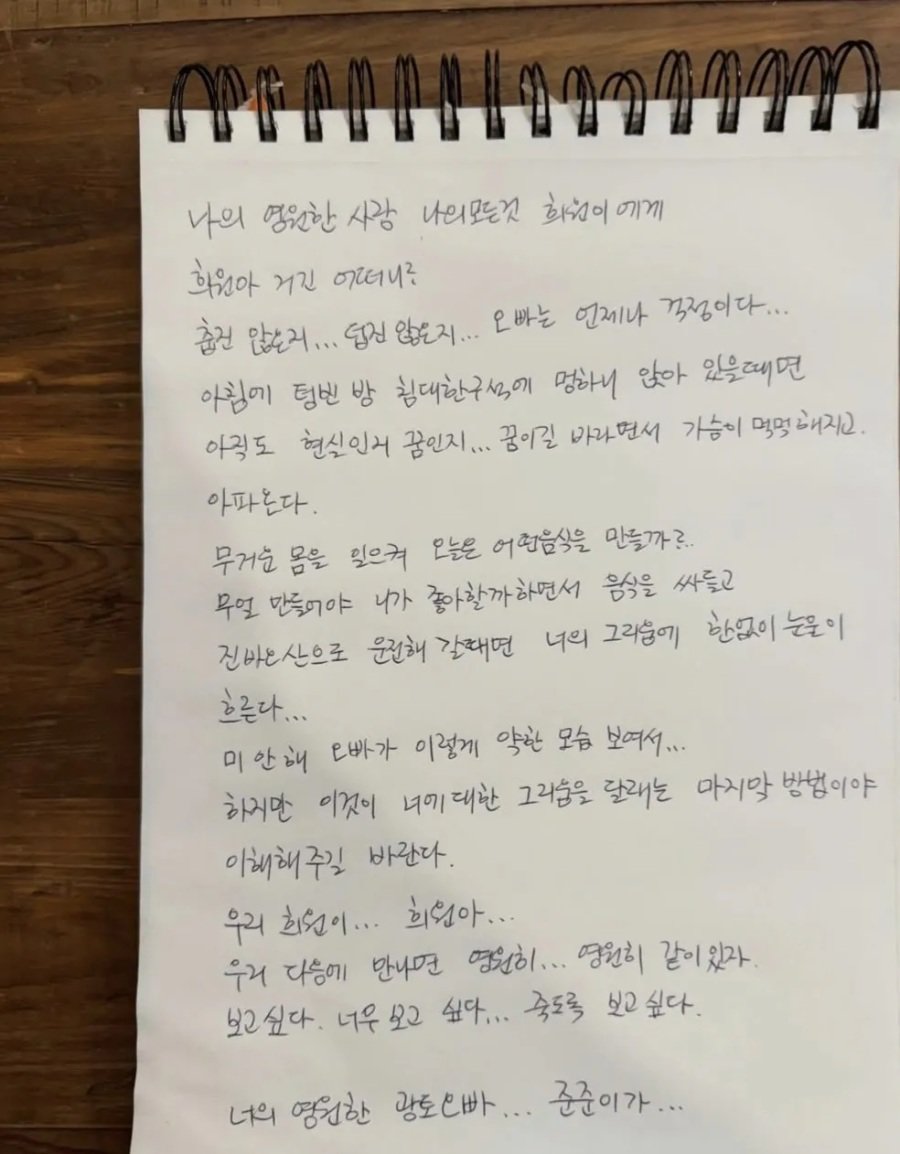 나의 영원한 사랑 나의모든것 희원이에게
희원아 거긴 어떠니?
춥진 않은지... 덥진않은지... 오빠는 언제나 걱정이다...
아침에 텅빈 방 침대한구석에 멍하니 앉아 있을때면
아직도 현실인지 꿈인지... 꿈이길 바라면서 가슴이 먹먹해지고.
아파온다.
무거운 몸을 일으켜 오늘은 어떤음식을 만들까?..
무얼 만들어야 니가 좋아할까하면서 음식을 싸들고
진바오산으로 운전해 갈때면 너의 그리움에 한없이 눈물이
흐른다...
미안해 오빠가 이렇게 약한 모습 보여서...
하지만 이것이 너에대한 그리움을 달래는 마지막 방법이야
이해해주길 바란다.
우리 희원이... 희원아...
우리 다음에 만나면 영원히... 영원히 같이있자.
보고싶다. 너무 보고 싶다... 죽도록 보고싶다.
너의 영원한 광토오빠... 준준이가...